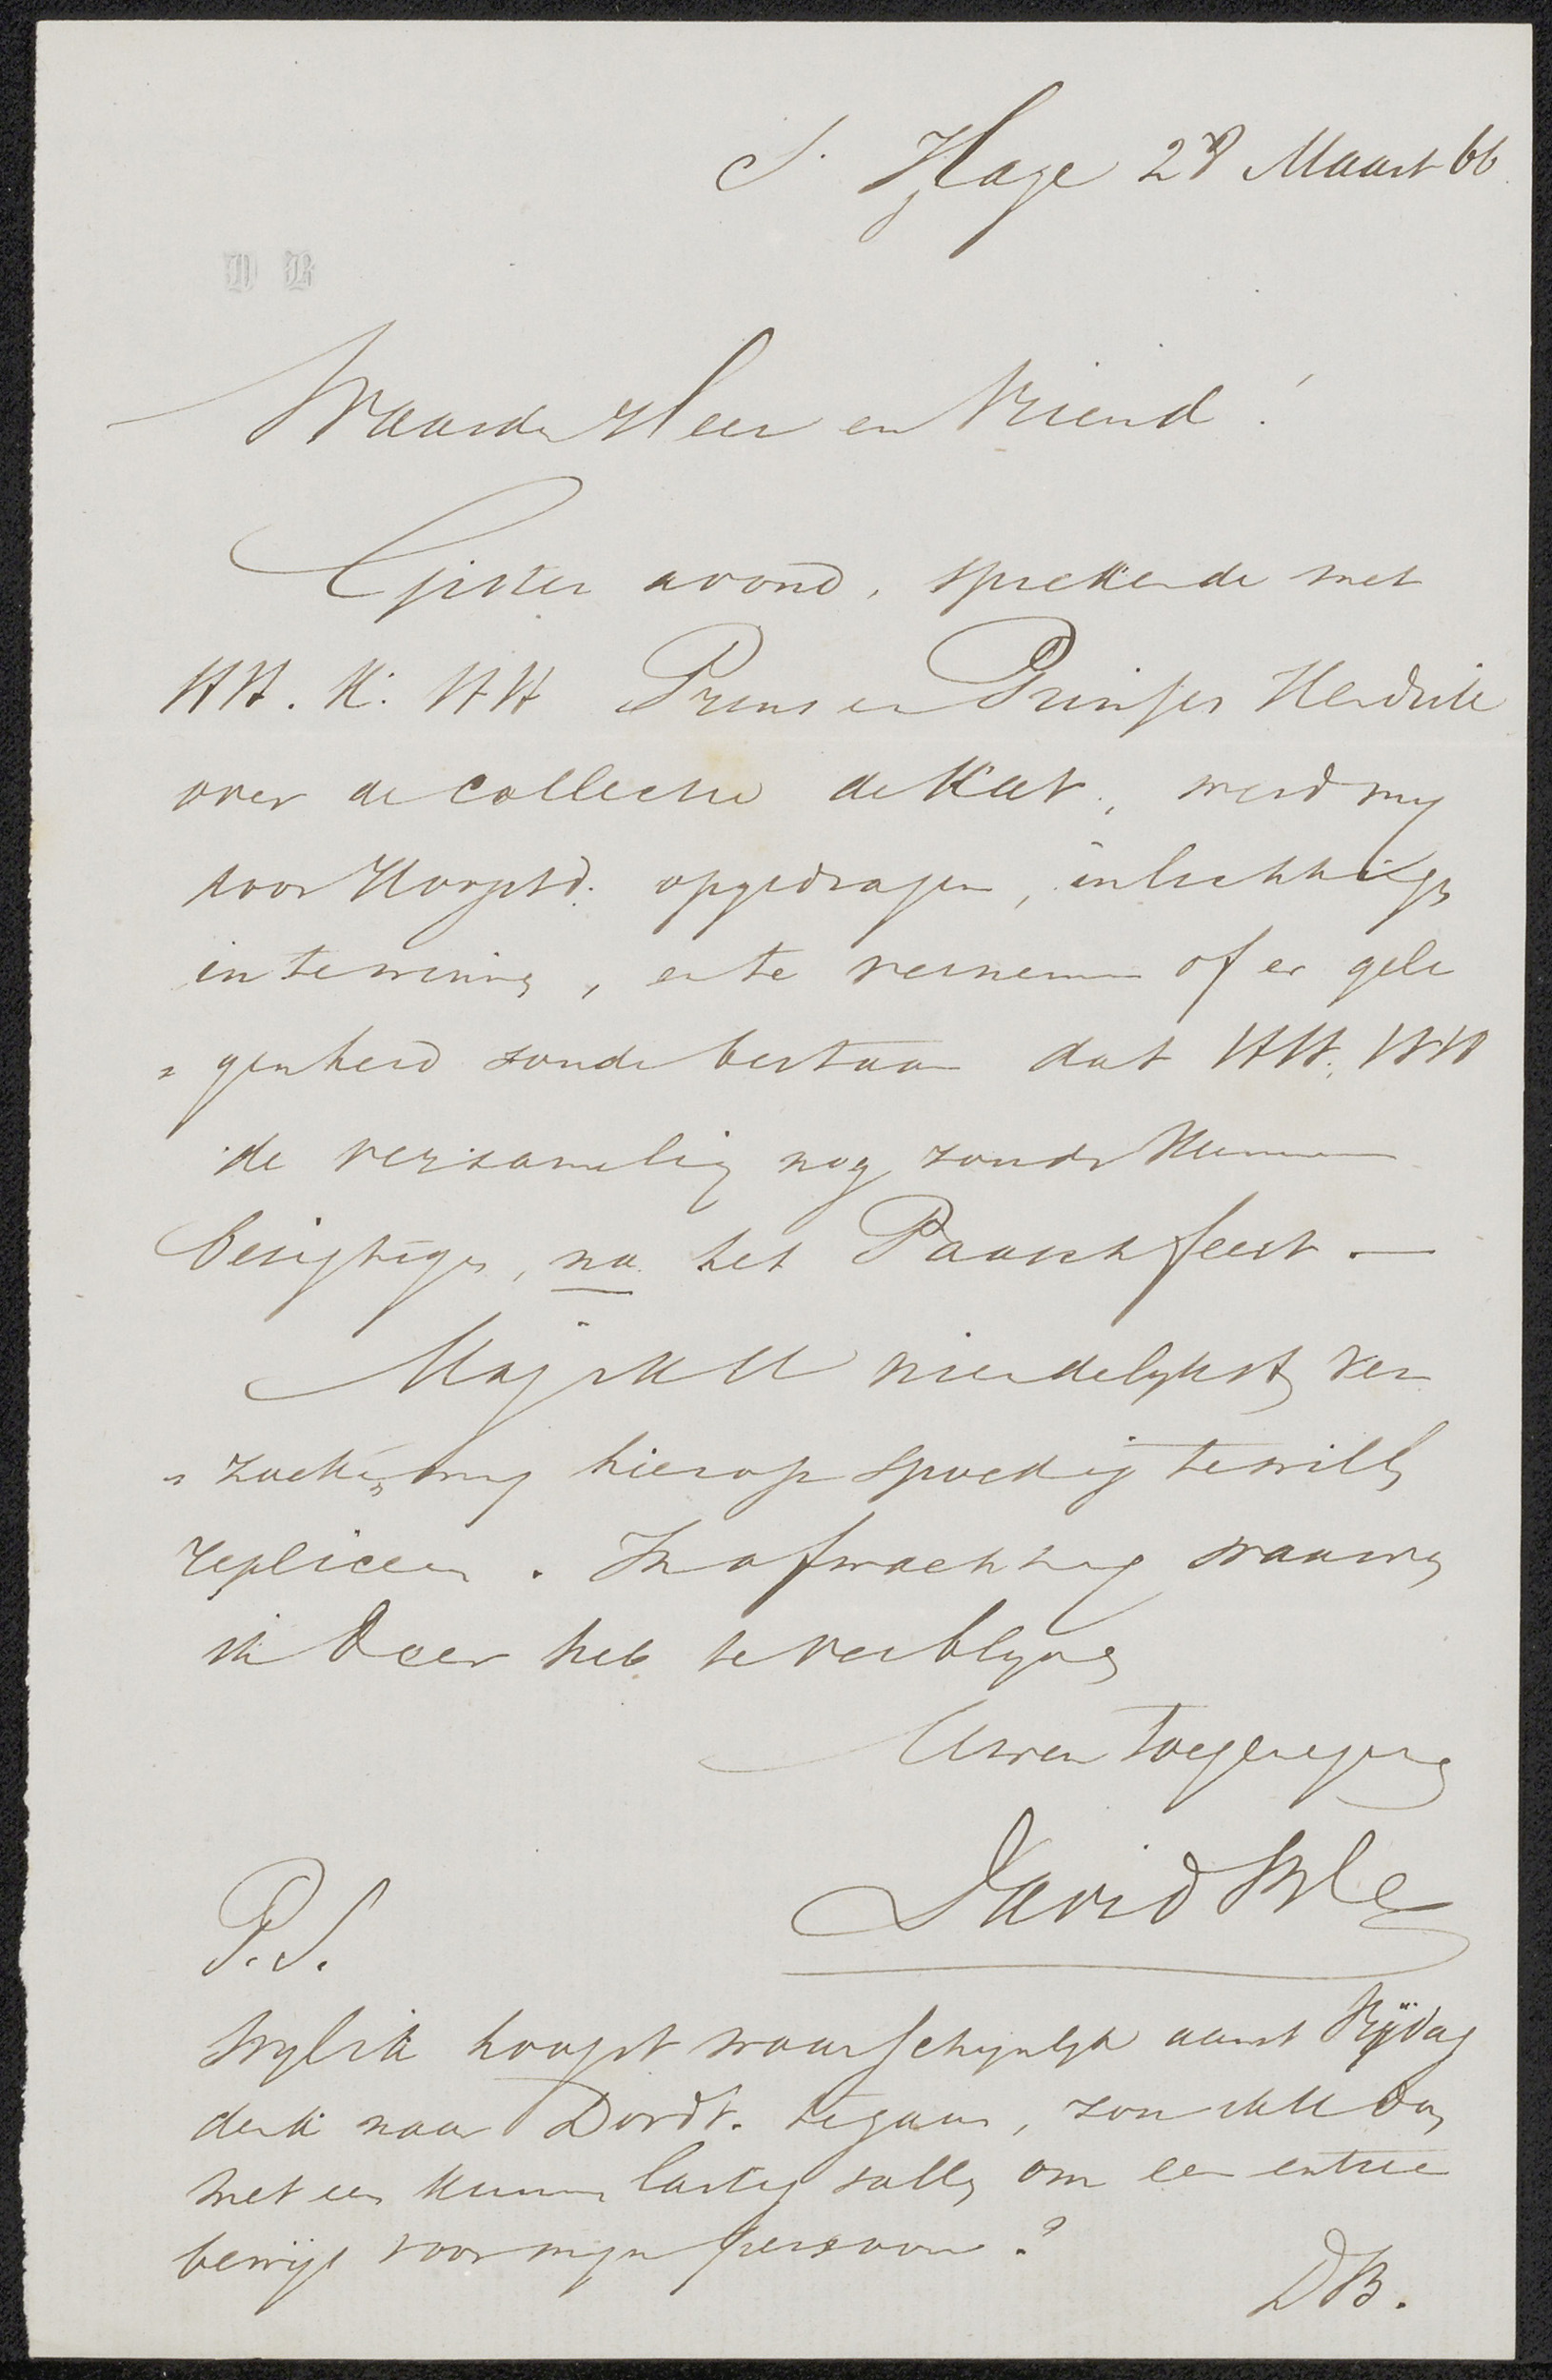 S. Hage 28 Maart 66
D B
Waarde Heer en Vriend!
Gister avond, sprekende met
HH. K. HH Prins en Prinses Hendrik
over de collectie de Kat, werd my
door Hoogstd. opgedragen, inlichtingen
in te winnen, en te vernemen of er gele
= genheid zoude bestaan dat HH. HH
de verzameling nog zoude kunnen
bezigtigen, na het Paaschfeest. —
Mag ik U vriendelykst ver
= zoeken, my hierop spoedig te willen
repliceren. In afwachting waarvan
ik de eer heb te verblyven
Uwen toegenegen
David Bles
P.S.
Wyl ik hoogst waarschynlyk aanst Vrydag
denk naar Dordt. te gaan, zou ik U dan
met een kunnen lastig vallen om een entree
bewijs voor myn persoon?
DB.